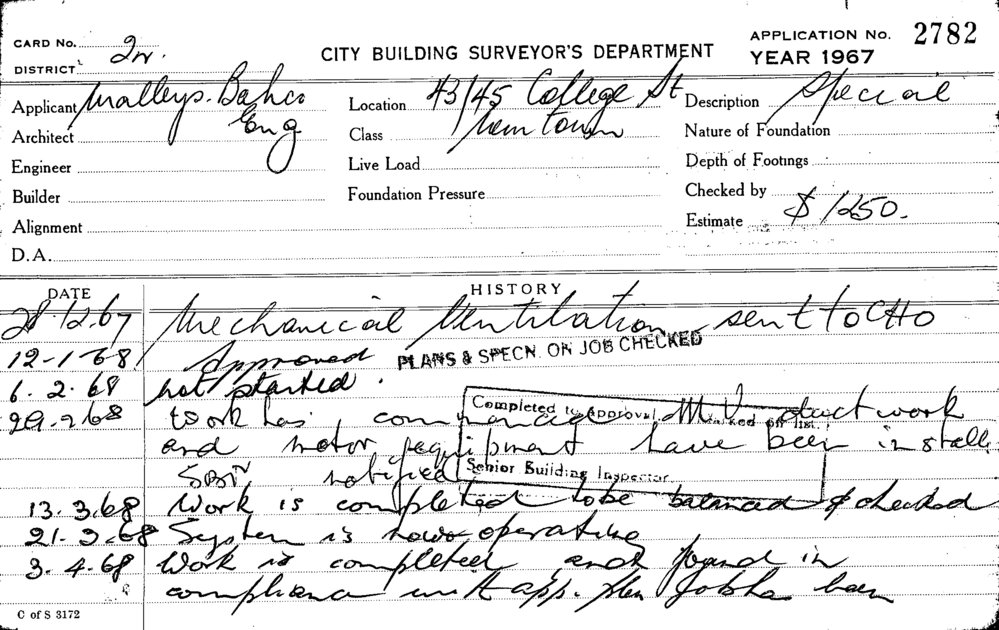 CARD No. 2w.
CITY BUILDING SURVEYOR'S DEPARTMENT
APPLICATION No. 2782
DISTRICT
YEAR 1967
Applicant Malleys. Bahco
Eng
Location 43/45 College St
Description Special
Architect
Class New Town
Nature of Foundation
Engineer
Live Load
Depth of Footings
Builder
Foundation Pressure
Checked by
Alignment
Estimate $ 1250.
D.A.
DATE
HISTORY
28.12.67 Mechanical Ventilation sent to CHO
12-1-68 Approved PLANS & SPECN. ON JOB CHECKED
6.2.68 not started.
Completed to Approval. Marked off list.
29.2.68 Work has commenced M.V. duct work
and motor equipment have been install
notified
Senior Building Inspector
13.3.68 Work is completed to be balanced & checked
21.3.68 System is now operating
3.4.68 Work is completed and found in
compliance with app. plan
been
C of S 3172